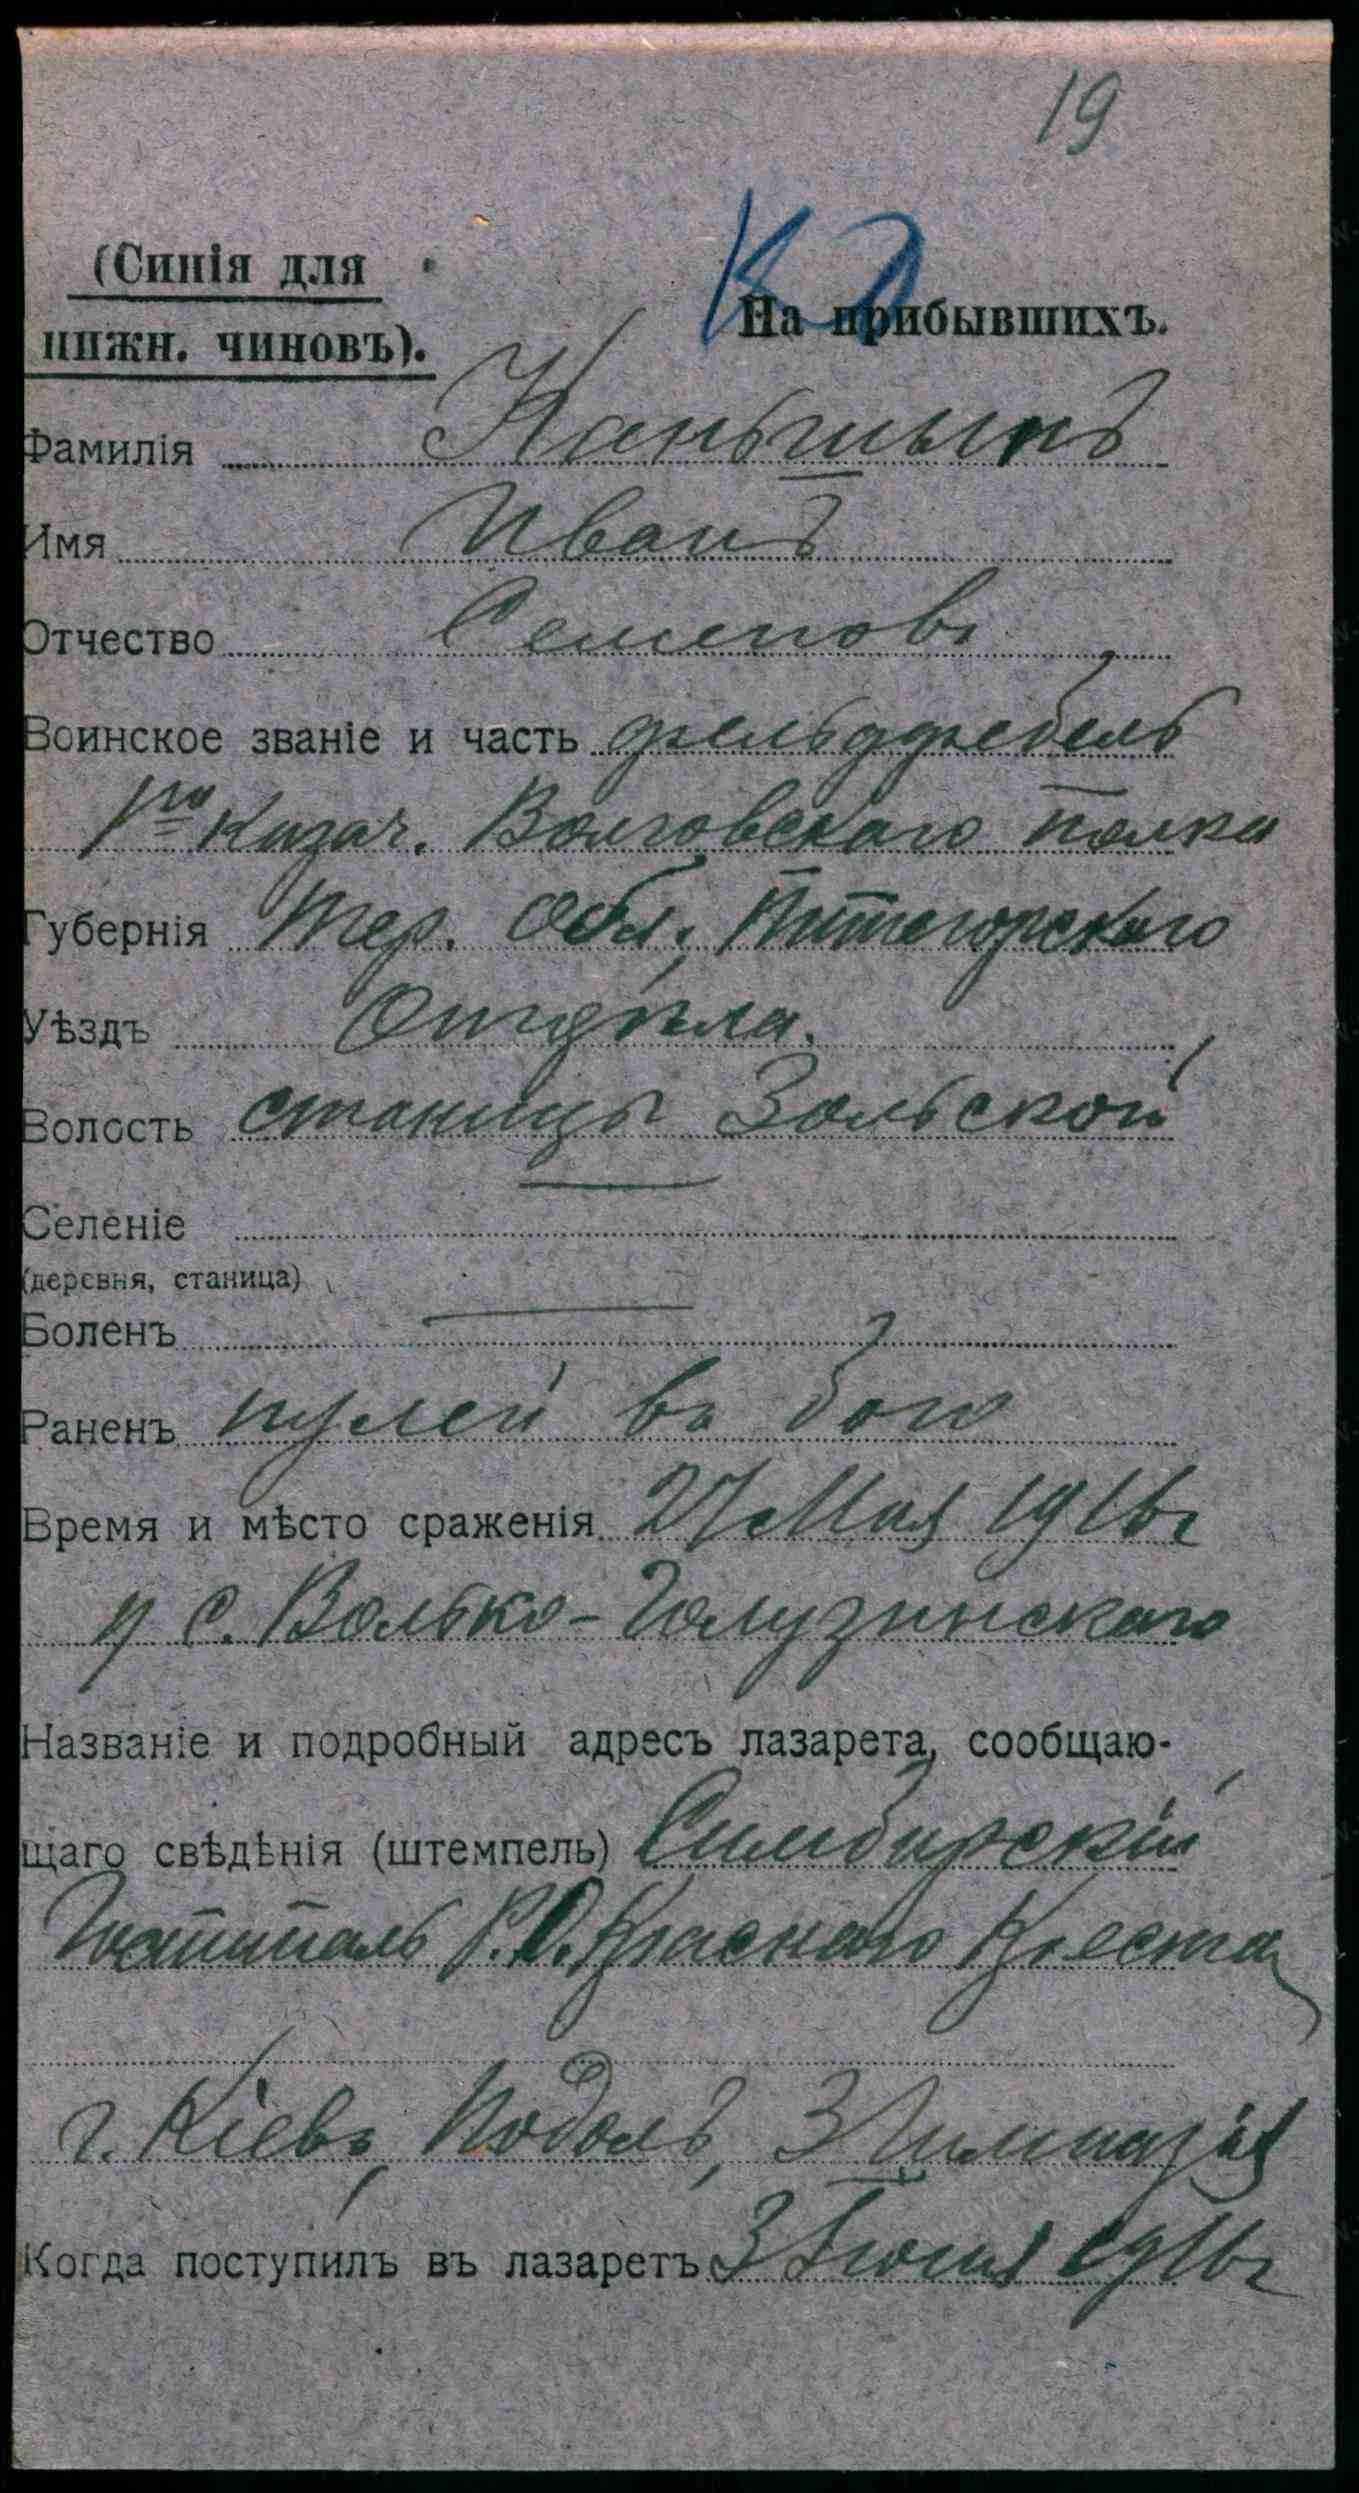 19
(Синія для
нижн. чиновъ).
На прибывшихъ.
Фамилія Каньшинъ
Имя Иванъ
Отчество Семеновъ
Воинское званіе и часть фельдфебель
1го Казач. Волговскаго полка
Губернія Тер. Обл. Пятигорскаго
Уѣздъ Отдѣла.
Волость станицы Зольской
Селеніе
(деревня, станица)
Боленъ
Раненъ пулей въ бою
Время и мѣсто сраженія 27 Мая 1916г
у с. Волько-Голузинскаго
Названіе и подробный адресъ лазарета, сообщаю-
щаго свѣдѣнія (штемпель) Симбирскій
Госпиталь Р.О. Краснаго Креста
г. Кіевъ, Подолъ, 3 Гимназія
Когда поступилъ въ лазаретъ 3 Іюня 1916г